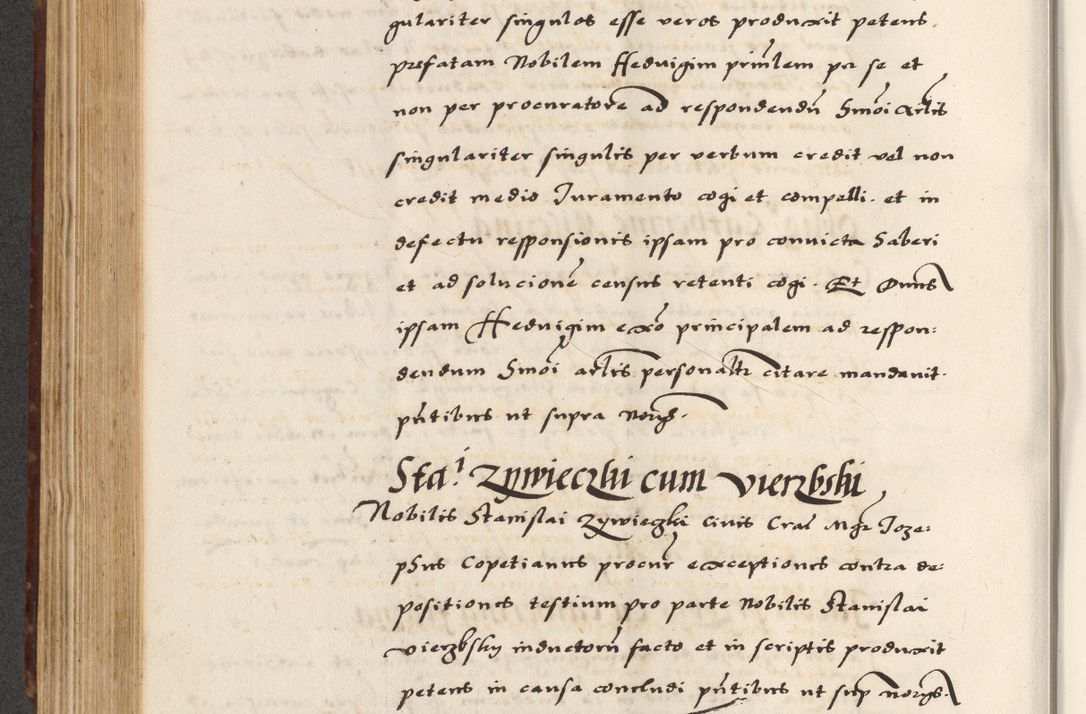 gulariter singulos esse veros produxit petens
prefatam Nobilem Hedvigim prinlem per se et
non per procuratore ad respondendū Smoi artis
singulariter singulis per verbum credit vel non
credit medio Juramento cogi et compelli. et in
defectu responsionis ipsam pro convicta haberi
et ad solucionē census retenti cogi. Et Dnns
ipsam Hedvigim exo principalem ad respon:
dendum Smoi artis personaltr citare mandavit.
pn̄tibus ut supra
Sta.i zywieczki cum vierzbski
Nobilis Stanislai zywieczki Civis Crac Mgr Joze:
phus Copetianus procur exceptiones contra de:
positiones testium pro parte Nobilis Stanislai
vierzbsky inductorū facto et in scriptis produxit
petens in causa concludi pn̄tibus ut sup